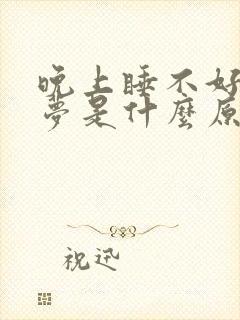 晚上睡不好
夢是什麼原
祝迅